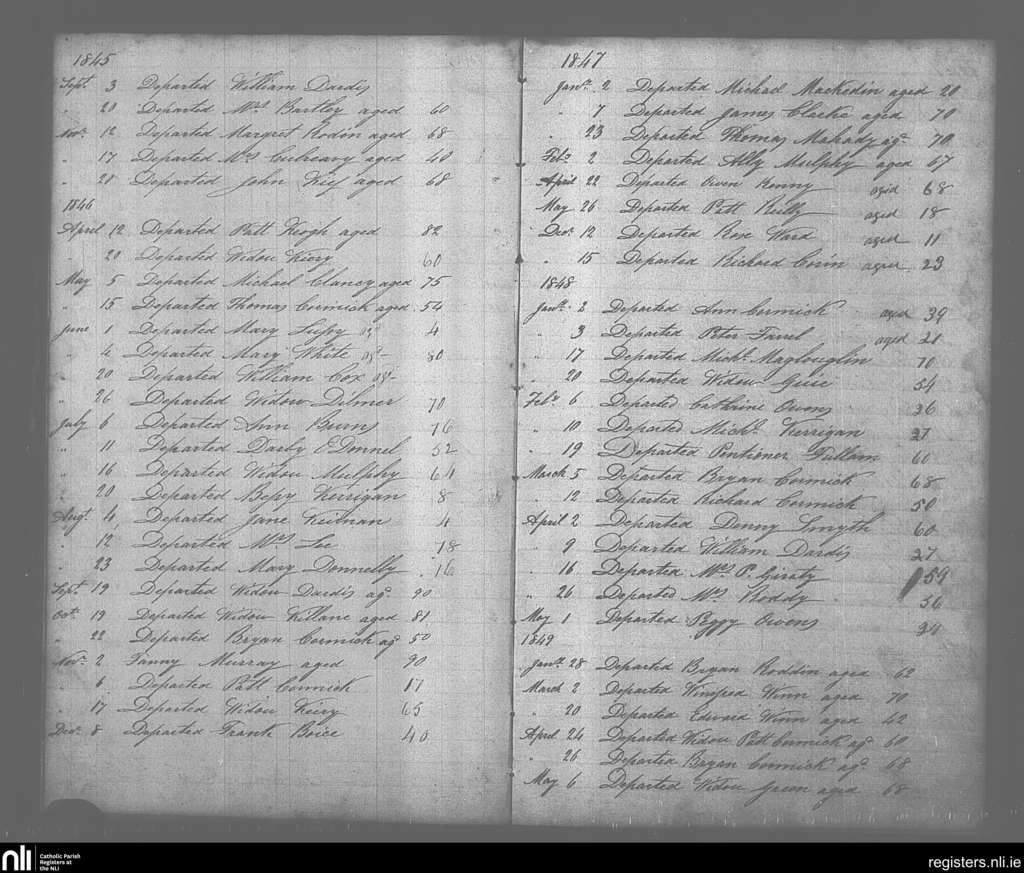 1845
Sept. 3 Departed William Dardis
" 20 Departed Mrs Bartley aged 60
Novr. 12 Departed Margret Rodin aged 68
" 17 Departed Mrs aged 40
" 21 Departed John Kief aged 68
1846
April 12 Departed Patt Keogh aged 82
" 20 Departed Widow Kiery 60
May 5 Departed Michael Clancy aged 75
" 15 Departed Thomas Cormick aged 54
June 1 Departed Mary ag- 4
" 4 Departed Mary White ag- 80
" 20 Departed William Cox ag-
" 26 Departed Widow Dilmer 70
July 6 Departed Ann Burns 76
" 11 Departed Darby O Donnel 52
" 16 Departed Widow Mulphy 64
" 20 Departed Bessy Kerrigan 8
Augt. 4 Departed Jane Keirnan 4
" 12 Departed Mrs Lee 78
" 23 Departed Mary Donnelly 16
Sept. 19 Departed Widow Dardis ag- 90
Oct. 19 Departed Widow Killane aged 81
" 22 Departed Bryan Cormick ag- 50
Novr. 2 Fanny Murray aged 90
" 6 Departed Patt Cormick 17
" 17 Departed Widow Kiery 65
Decr. 8 Departed Frank Boice 40
1847
Jany. 2 Departed Michael Mackedin aged 20
" 7 Departed James Clarke aged 70
" 23 Departed Thomas Mahady ag- 70
Feby. 2 Departed Ally Mulphy aged 67
April 22 Departed Owen Kenny aged 68
May 26 Departed Patt Reilly aged 18
Decr. 12 Departed Rose Ward aged 11
" 15 Departed Richard Corin aged 23
1848
Jany. 2 Departed Ann Cormick aged 39
" 3 Departed Peter Farrel aged 21
" 17 Departed Michl. Maglouglin 70
" 20 Departed Widow 54
Feby. 6 Departed Cathrine Owens 36
" 10 Departed Michl. Kerrigan 27
" 19 Departed Pentioner Fullam 60
March 5 Departed Bryan Cormick 68
" 12 Departed Richard Cormick 50
April 2 Departed Denny Smyth 60
" 9 Departed William Dardis 27
" 16 Departed Mrs P. Giraty 59
" 26 Departed Mrs Roddy 56
May 1 Departed Peggy Owens 34
1849
Jany. 28 Departed Bryan Roddin aged 62
March 2 Departed Winifred Winn aged 70
" 20 Departed Edward Winn aged 42
April 24 Departed Widow Patt Cormick ag- 60
" 26 Departed Bryan Cormick ag- 68
May 6 Departed Widow Green aged 68
nli Catholic Parish
Registers at
the NLI
registers.nli.ie